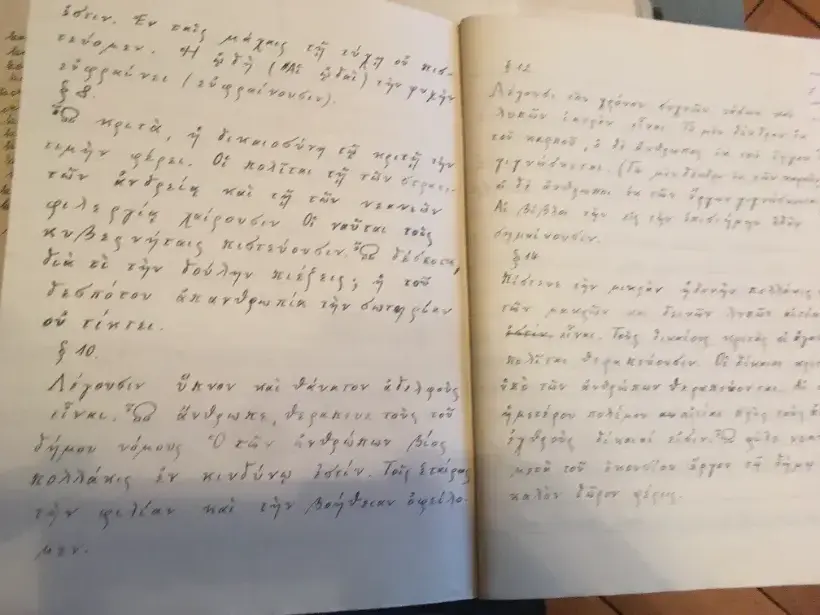 ἐστιν. Ἐν ταῖς μάχαις τῇ τύχῃ οὐ πισ-
τεύομεν. Ἡ ᾠδὴ (Αἱ ᾠδαὶ) τὴν ψυχὴν
εὐφραίνει (εὐφραίνουσιν).
§ 8.
Ὦ κριτὰ, ἡ δικαιοσύνη τῷ κριτῇ τὴν
τιμὴν φέρει. Οἱ πολῖται τῇ τῶν
τῶν ἀνδρείᾳ καὶ τῇ τῶν νεανιῶν
φιλεργίᾳ χαίρουσιν Οἱ ναῦται τοῖς
κυβερνήταις πιστεύουσιν. Ὦ δέσποτα,
διὰ τί τὴν δούλην πιέζεις; ἡ τοῦ
δεσπότου ἀπανθρωπία τὴν σωτηρίαν
οὐ τίκτει.
§ 10.
Λέγουσιν ὕπνον καὶ θάνατον ἀδελφοὺς
εἶναι. Ὦ ἄνθρωπε, θεράπευε τοὺς τοῦ
δήμου νόμους Ὁ τῶν ἀνθρώπων βίος
πολλάκις ἐν κινδύνῳ ἐστίν. Τοῖς ἑταίροις
τὴν φιλίαν καὶ τὴν βοήθειαν ὀφείλο-
μεν.
§ 12
Λέγουσι τὸν χρόνον συχνῶν νόσων καὶ
λυπῶν ἰατρὸν εἶναι Τὸ μὲν δένδρον ἐκ
τοῦ καρποῦ, ὁ δὲ ἄνθρωπος ἐκ τοῦ ἔργου
γιγνώσκεται. (Τὰ μὲν δένδρα ἐκ τῶν καρπῶν
οἱ δὲ ἄνθρωποι ἐκ τῶν ἔργων γιγνώσκονται
Αἱ βίβλοι τὴν εἰς τὴν ἐπιστήμην ὁδὸν
σημαίνουσιν.
§ 14
Πίστευε τὴν μικρὰν ἡδονὴν πολλάκις
τῶν μακρῶν καὶ δεινῶν λυπῶν αἰτίαν
εἶναι. Τοὺς δικαίους κριτὰς οἱ
πολῖται θεραπεύουσιν. Οἱ δίκαιοι
ὑπὸ τῶν ἀνθρώπων θεραπεύονται. Αἱ
ἡμετέρου πολέμου αἰτίαι πρὸς τοὺς
ἐχθροὺς δίκαιαί εἰσιν. Ὦ φίλε
μετὰ τοῦ ἑκουσίου ἔργου τῷ δήμῳ
καλὸν δῶρον φέρεις.